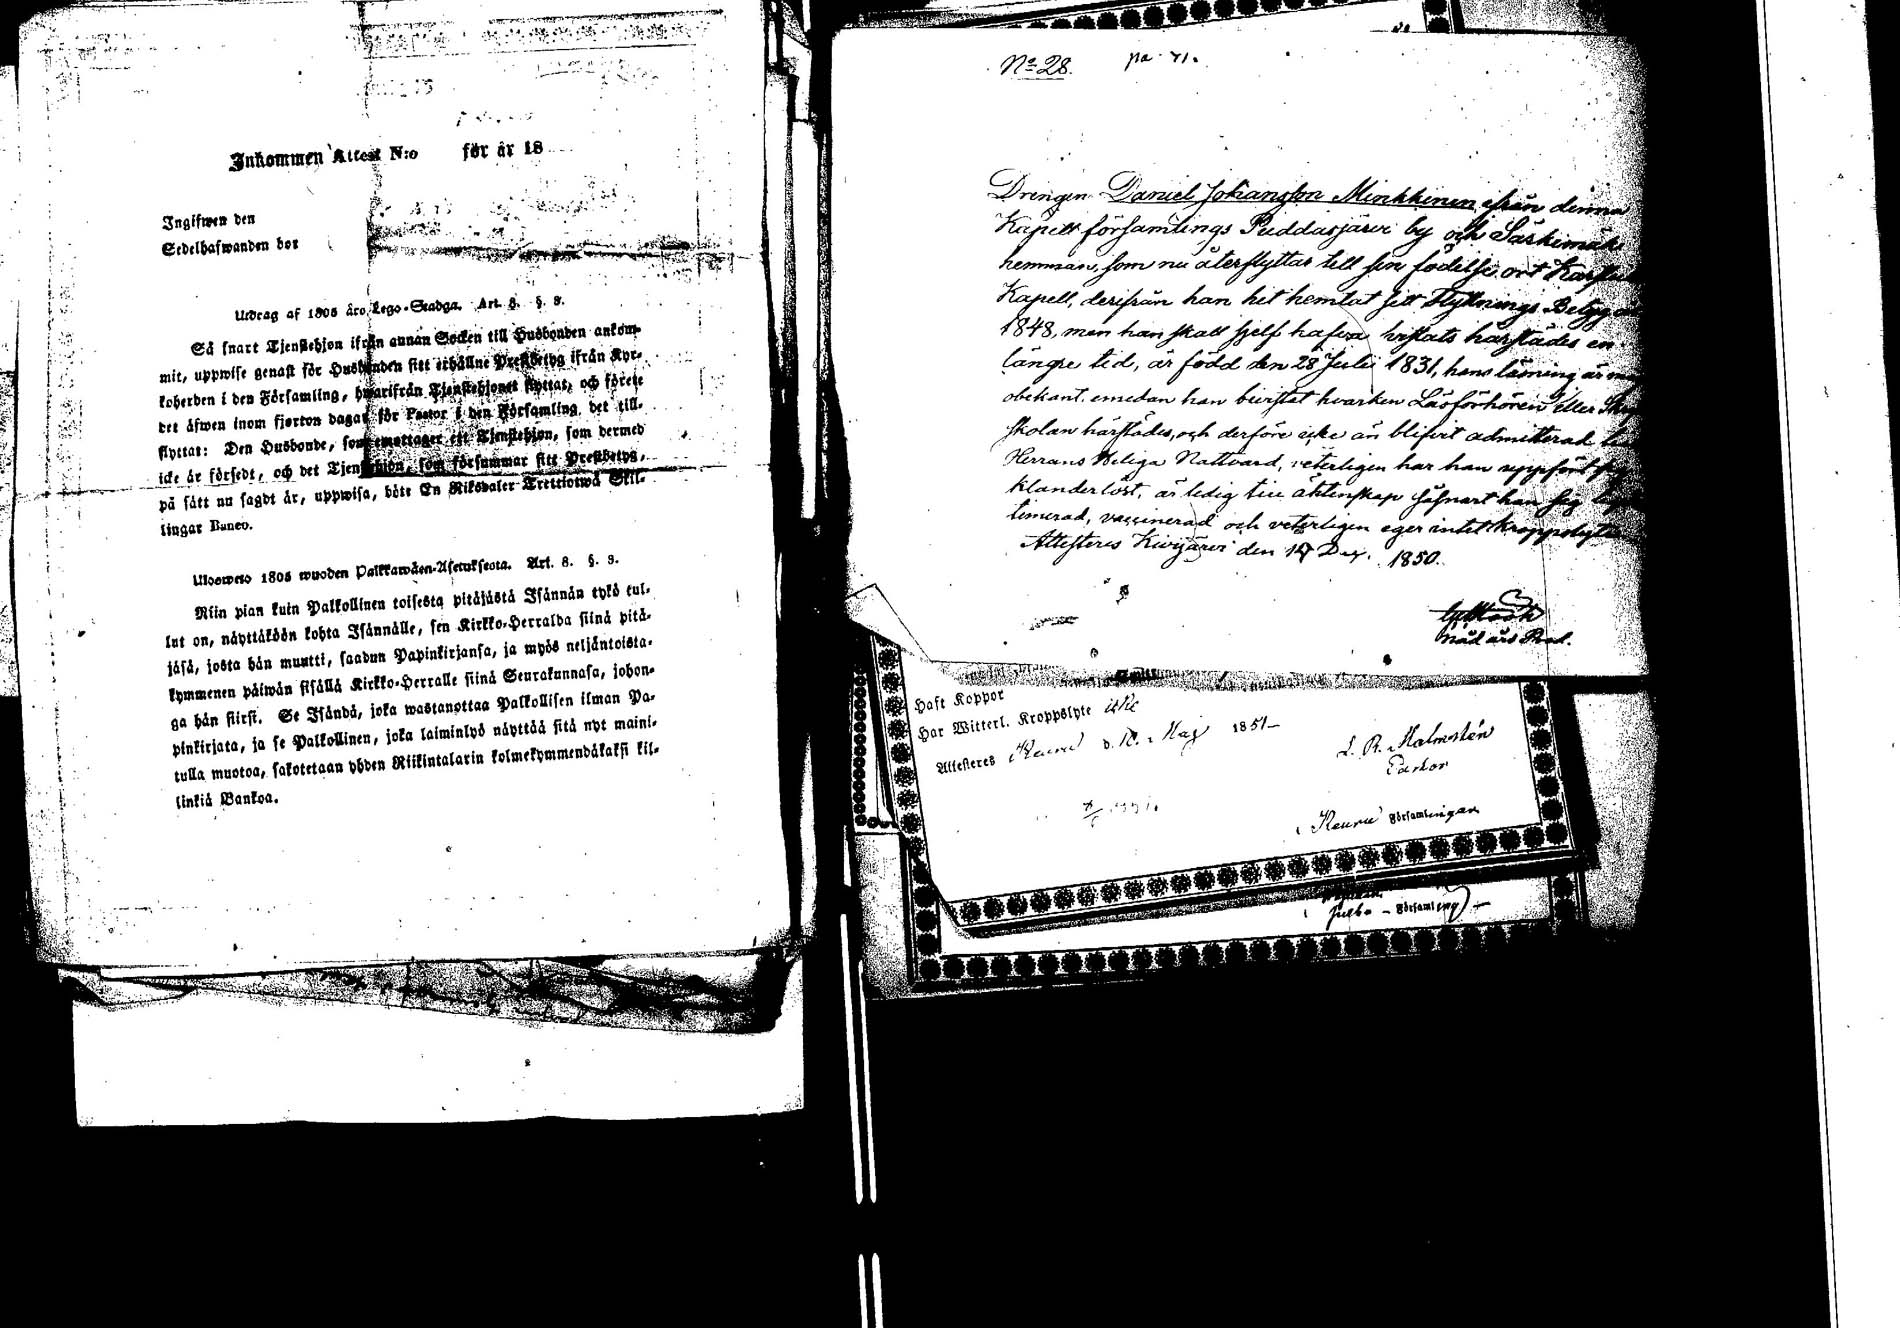 Inkommen Attest N:o för år 18
Ingifwen den
Sedelhafwanden bor
Utdrag af 1805 års Lego-Stadga. Art. 8. §. 9.
Så snart Tjenstehjon ifrån annan Socken till Husbonden ankom-
mit, uppwise genast för Husbonden sitt erhållne Prestbetyg ifrån Kyr-
koherden i den Församling, hwarifrån Tjenstehjonet flyttat, och förete
det äfwen inom fjorton dagar för Pastor i den Församling det till-
flyttat: Den Husbonde, som emottager ett Tjenstehjon, som dermed
icke är försedt, och det Tjenstehjon, som försummar sitt Prestbetyg,
på sätt nu sagdt är, uppwisa, böte En Riksdaler Trettiotwå Skil-
lingar Banco.
Ulosweto 1805 wuoden Palkkawäen-Asetuksesta. Art. 8. §. 9.
Niin pian kuin Palkollinen toisesta pitäjästä Isännän tykö tul-
lut on, näyttäköön kohta Isännälle, sen Kirkko-Herralda siinä pitä-
jäsä, josta hän muutti, saadun Papinkirjansa, ja myös neljäntoista-
kymmenen päiwän sisällä Kirkko-Herralle siinä Seurakunnasa, johon-
ga hän siirsi. Se Isändä, joka wastanottaa Palkollisen ilman Pa-
pinkirjata, ja se Palkollinen, joka laiminlyö näyttää sitä nyt maini-
tulla muotoa, sakotetaan yhden Riikintalarin kolmekymmendäkaksi kil-
linkiä Bankoa.
No 28. pa. 71.
Drengen Daniel Johansson Minkkinen ifrån denna
Kapell församlings Puddasjärvi by och Säskimäki
hemman, som nu återflyttar till sin födelse ort Karstula
Kapell, derifrån han hit hemtat sitt Flyttnings Betyg
1848, men han skall sjelf hafva vistats härstädes en
längre tid, är född den 28 Julii 1831, hans läsning är
obekant emedan han bevistat hvarken Läsförhören eller
skolan härstädes, och derföre icke än blifvit admitterad
Herrans Heliga Nattvard, veterligen har han uppfört sig
klanderlöst, är ledig till äktenskap såsnart han sig
timerad, vaccinerad och veterligen eger intet kroppslyte
Attesteras Kivijärvi den 17 Dec. 1850.
Haft Koppor
Har Witterl. Kroppslyte icke
Attesteres Keuru d. Maj 1851
L. R. Malmstén
Pastor
Keuru Församlingar
Församling